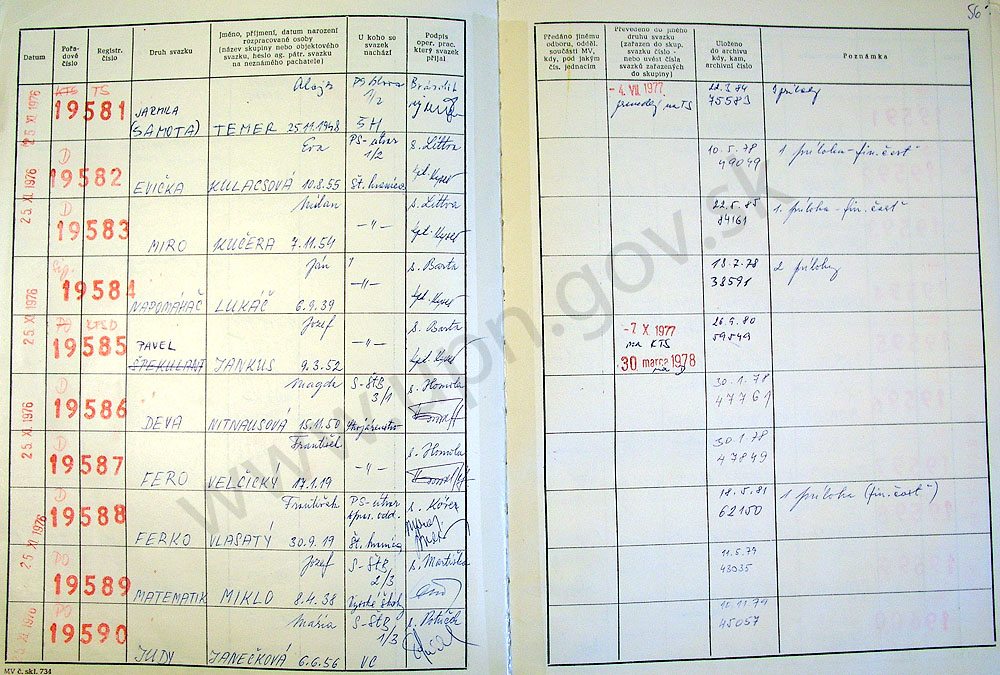 56
Datum
Pořa-
dové
číslo
Registr.
číslo
Druh svazku
Jméno, příjmení, datum narození
rozpracované osoby
(název skupiny nebo objektového
svazku, heslo ag. pátr. svazku
na neznámého pachatele)
U koho se
svazek
nachází
Podpis
oper. prac.
který svazek
přijal
Předáno jinému
odboru, odděl.
součásti MV,
kdy, pod jakým
čís. jednacím
Převedeno do jiného
druhu svazku
(zařazen do skup.
svazku číslo -
nebo uvést čísla
svazků zařazených
do skupiny)
Uloženo
do archivu
kdy, kam,
archivní číslo
Poznámka
25 XI 1976
KTS TS
19581
JARMILA
(SAMOTA)
Alojz
TEMER 25.11.1948
1/2
ŠH
- 4. VII. 1977
na TS
75583
25 XI. 1976
D
19582
EVIČKA
Eva
KULACSOVÁ 10.8.55
PS-útvar
1/2
Št. hranice
s. Littva
10.5.78
49049
1 príloha-fin.časť
D
19583
MIRO
Milan
KUČERA 7.11.54
-"-
s. Littva
22.5.85
84161
1. príloha-fin.časť
25 XI. 1976
19584
NAPOMÁHAČ
Ján
LUKÁČ 6.9.39
-"-
s. Barta
18.7.78
38591
2 prílohy
25 XI. 1976
PO
19585
PAVEL
ŠPEKULANT
Jozef
JANKUS 9.3.52
-"-
s. Barta
-7 X 1977
na KTS
30 marca 1978
26.9.80
59549
25 XI. 1976
D
19586
DEVA
Magda
NITNAUSOVÁ 15.11.50
S-ŠTB
3/1
Strojárenstvo
s. Homola
30.1.78
47761
D
19587
FERO
František
VELČICKÝ 17.1.19
-"-
s. Homola
30.1.78
47849
25 XI 1976
D
19588
FERKO
František
VLASATÝ 30.9.19
PS-útvar
Št. hranice
18.5.81
62100
1 príloha (fin.časť)
PO
19589
MATEMATIK
Jozef
MIKLO 8.4.38
S-ŠTB
2/3
Vysoké školy
s. Martiška
11.5.79
48035
PO
19590
JUDY
Maria
JANEČKOVÁ 6.6.56
S-ŠTB
1/3
VC
45057
MV č. skl. 734
www.upn.gov.sk